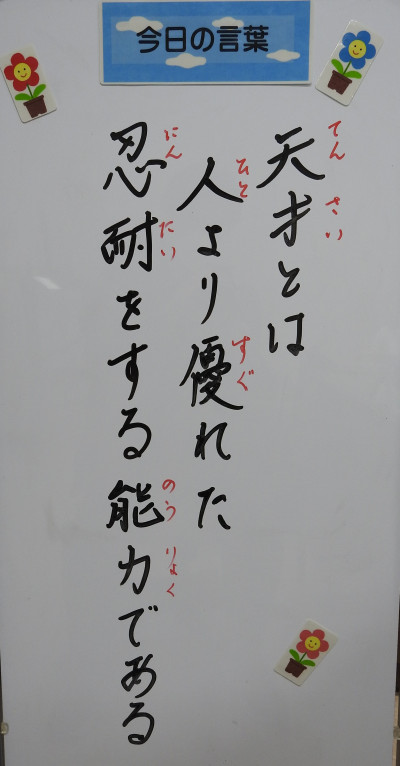 今日の言葉
天才とは
てんさい
人より優れた
ひと すぐ
忍耐をする能力である
にんたい のうりょく